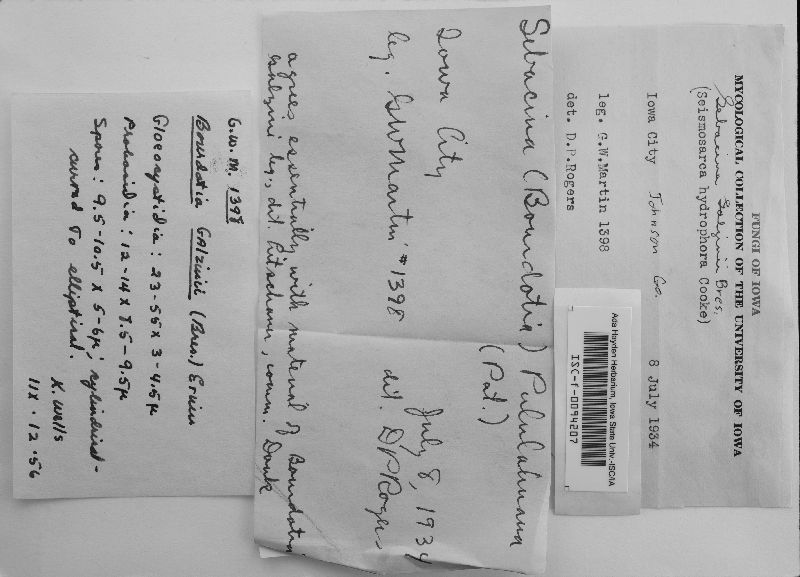 FUNGI OF IOWA
MYCOLOGICAL COLLECTION OF THE UNIVERSITY OF IOWA
Sebacina Galzinii Bres.
(Seismosarca hydrophora Cooke)
Iowa City Johnson Co. 8 July 1934
leg. G.W.Martin 1398
det. D.P.Rogers
Ada Hayden Herbarium, Iowa State Univ.-ISC/IA
ISC-f-0094207
Sebacina (Bourdotia) Pululahuana
(Pat.)
Iowa City July 8, 1934
leg. GWMartin #1398 det. DPRogers
agrees essentially with material of Bourdotia
Galzinii leg., det. Litschauer, comm. Donk
G.W.M. 1398
Bourdotia Galzinii (Bres.)
Gloeocystidia: 23-55 x 3-4.5µ
Probasidia: 12-14 x 7.5-9.5µ
Spores: 9.5-10.5 x 5-6µ; cylindrical-
curved to elliptical.
K. Wells
11X.12.56